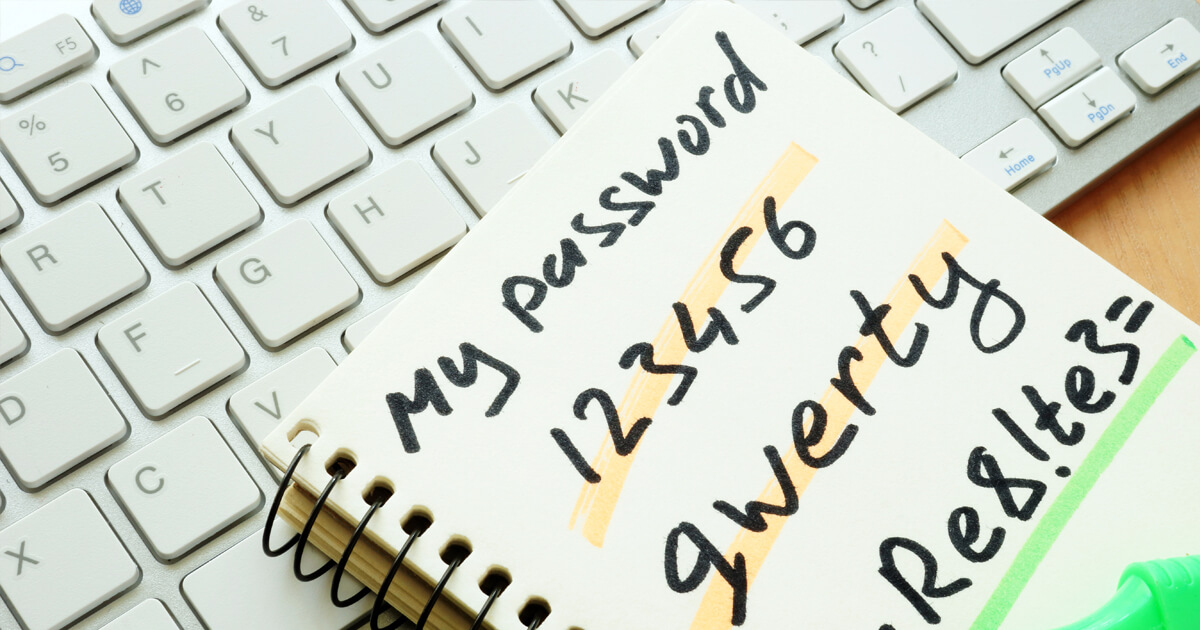 My password
123456
qwerty
Re8!te3=
F5
% 5
^ 6
& 7
R
T
Y
U
I
D
F
G
H
J
K
X
C
V
? /
PgUp
PgDn
Home
End